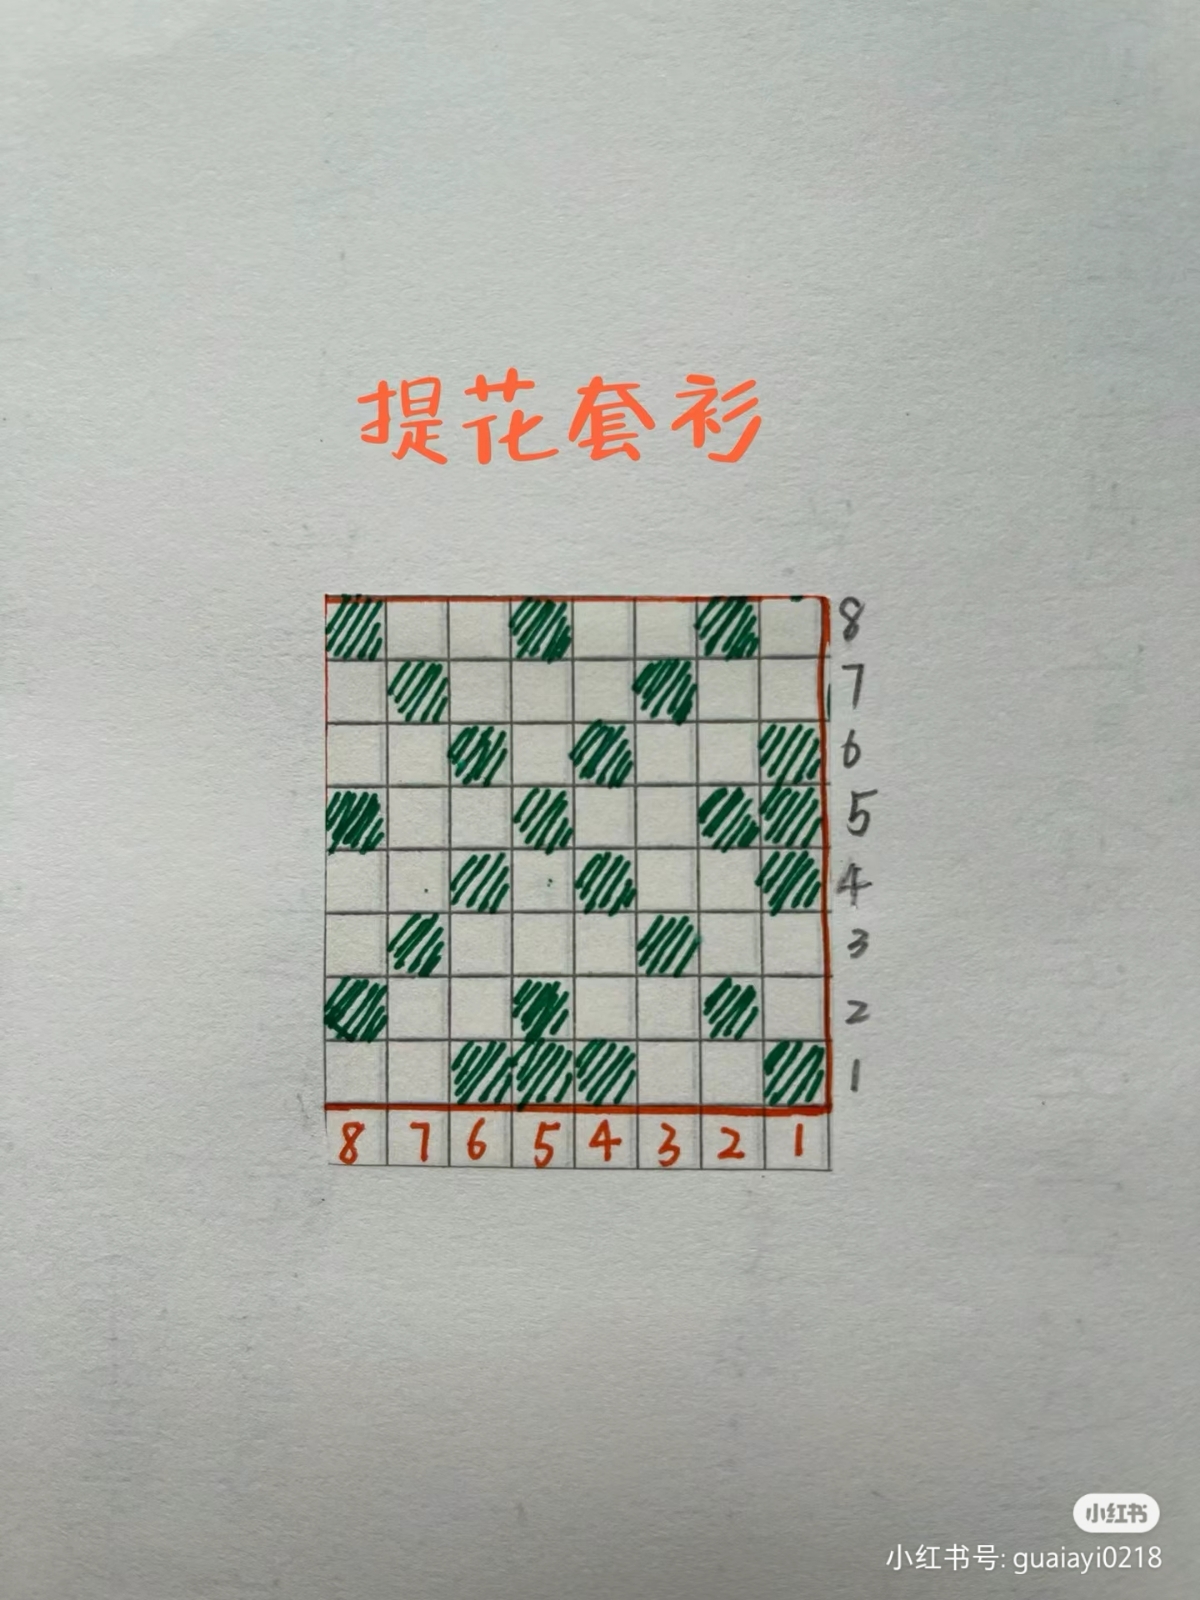 提花套衫
8
7
6
5
4
3
2
1
8 7 6 5 4 3 2 1
小红书
小红书号: guaiayi0218